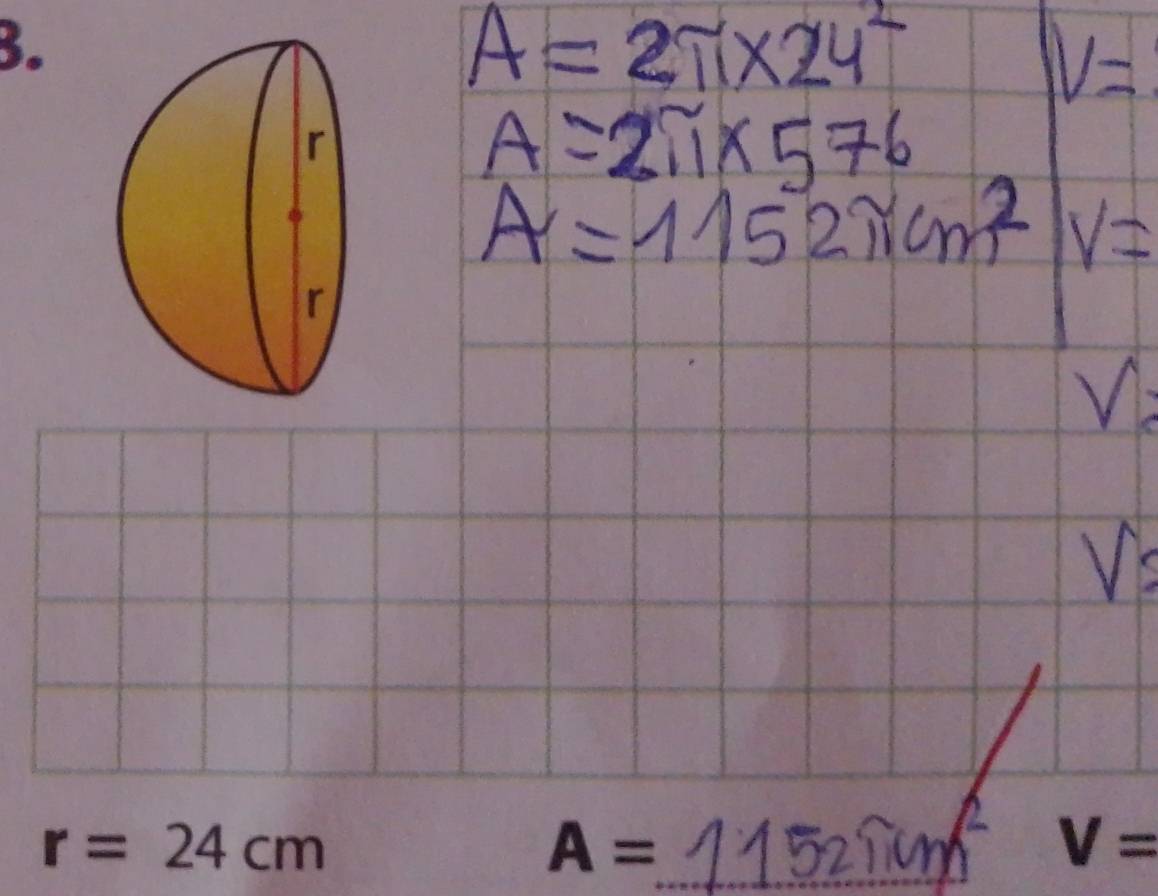 3.
r
r
A = 2π×24²
A = 2π×576
A = 1152πcm²
V=
V=
V=
V=
r = 24 cm
A = 1152πcm²
V =